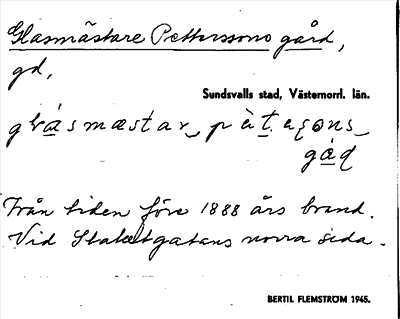 Glasmästare Petterssons gård,
gd,
Sundsvalls stad, Västernorrl. län.
Från tiden före 1888 års brand.
Vid Staketgatans norra sida.
BERTIL FLEMSTRÖM 1945.